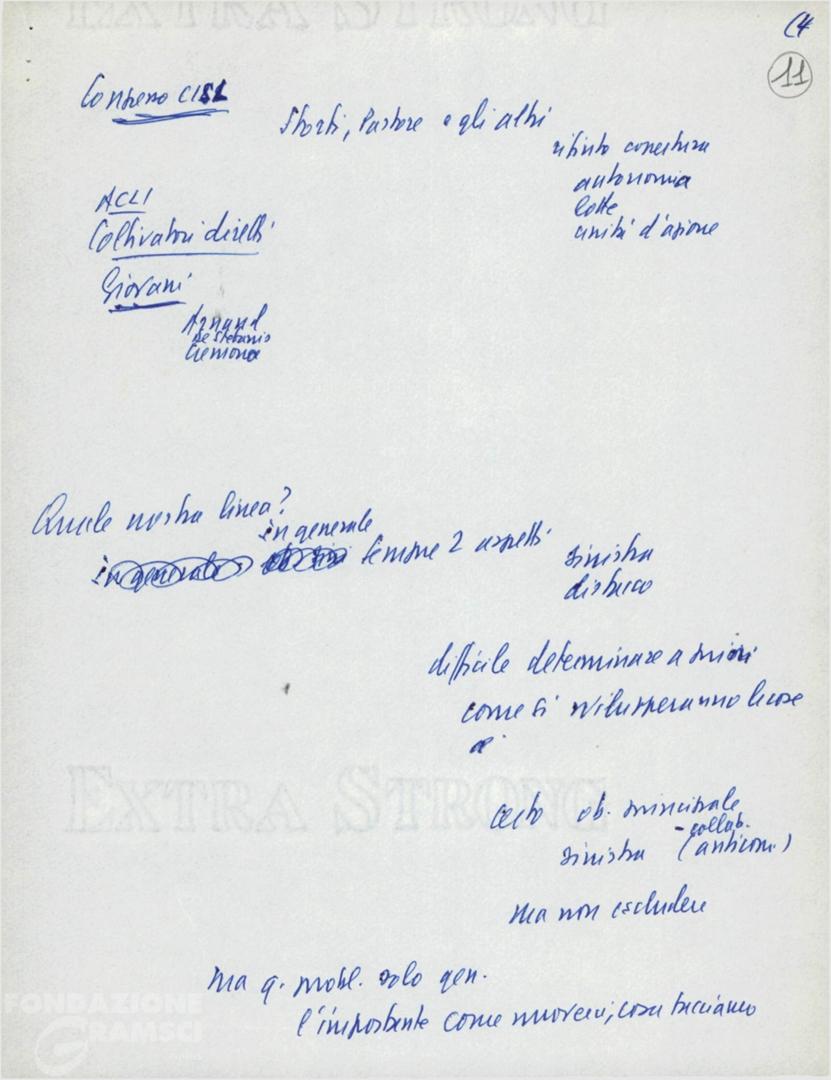 (4
11
Congresso CISL
Storti, Pastore e gli altri
rifiuto congiuntura
autonomia
lotte
unità d'azione
ACLI
Coltivatori diretti
Giovani
Arnaud
De Stefanis
Cremona
Quale nostra linea?
in generale
in generale sempre 2 aspetti
sinistra
distacco
difficile determinare a priori
come si svilupperanno le cose
certo ob. principale
- collab.
sinistra (anticom.)
ma non escludere
ma q. probl. solo gen.
l'importante come muoverci, cosa facciamo
EXTRA STRONG
EXTRA STRONG
FONDAZIONE
GRAMSCI